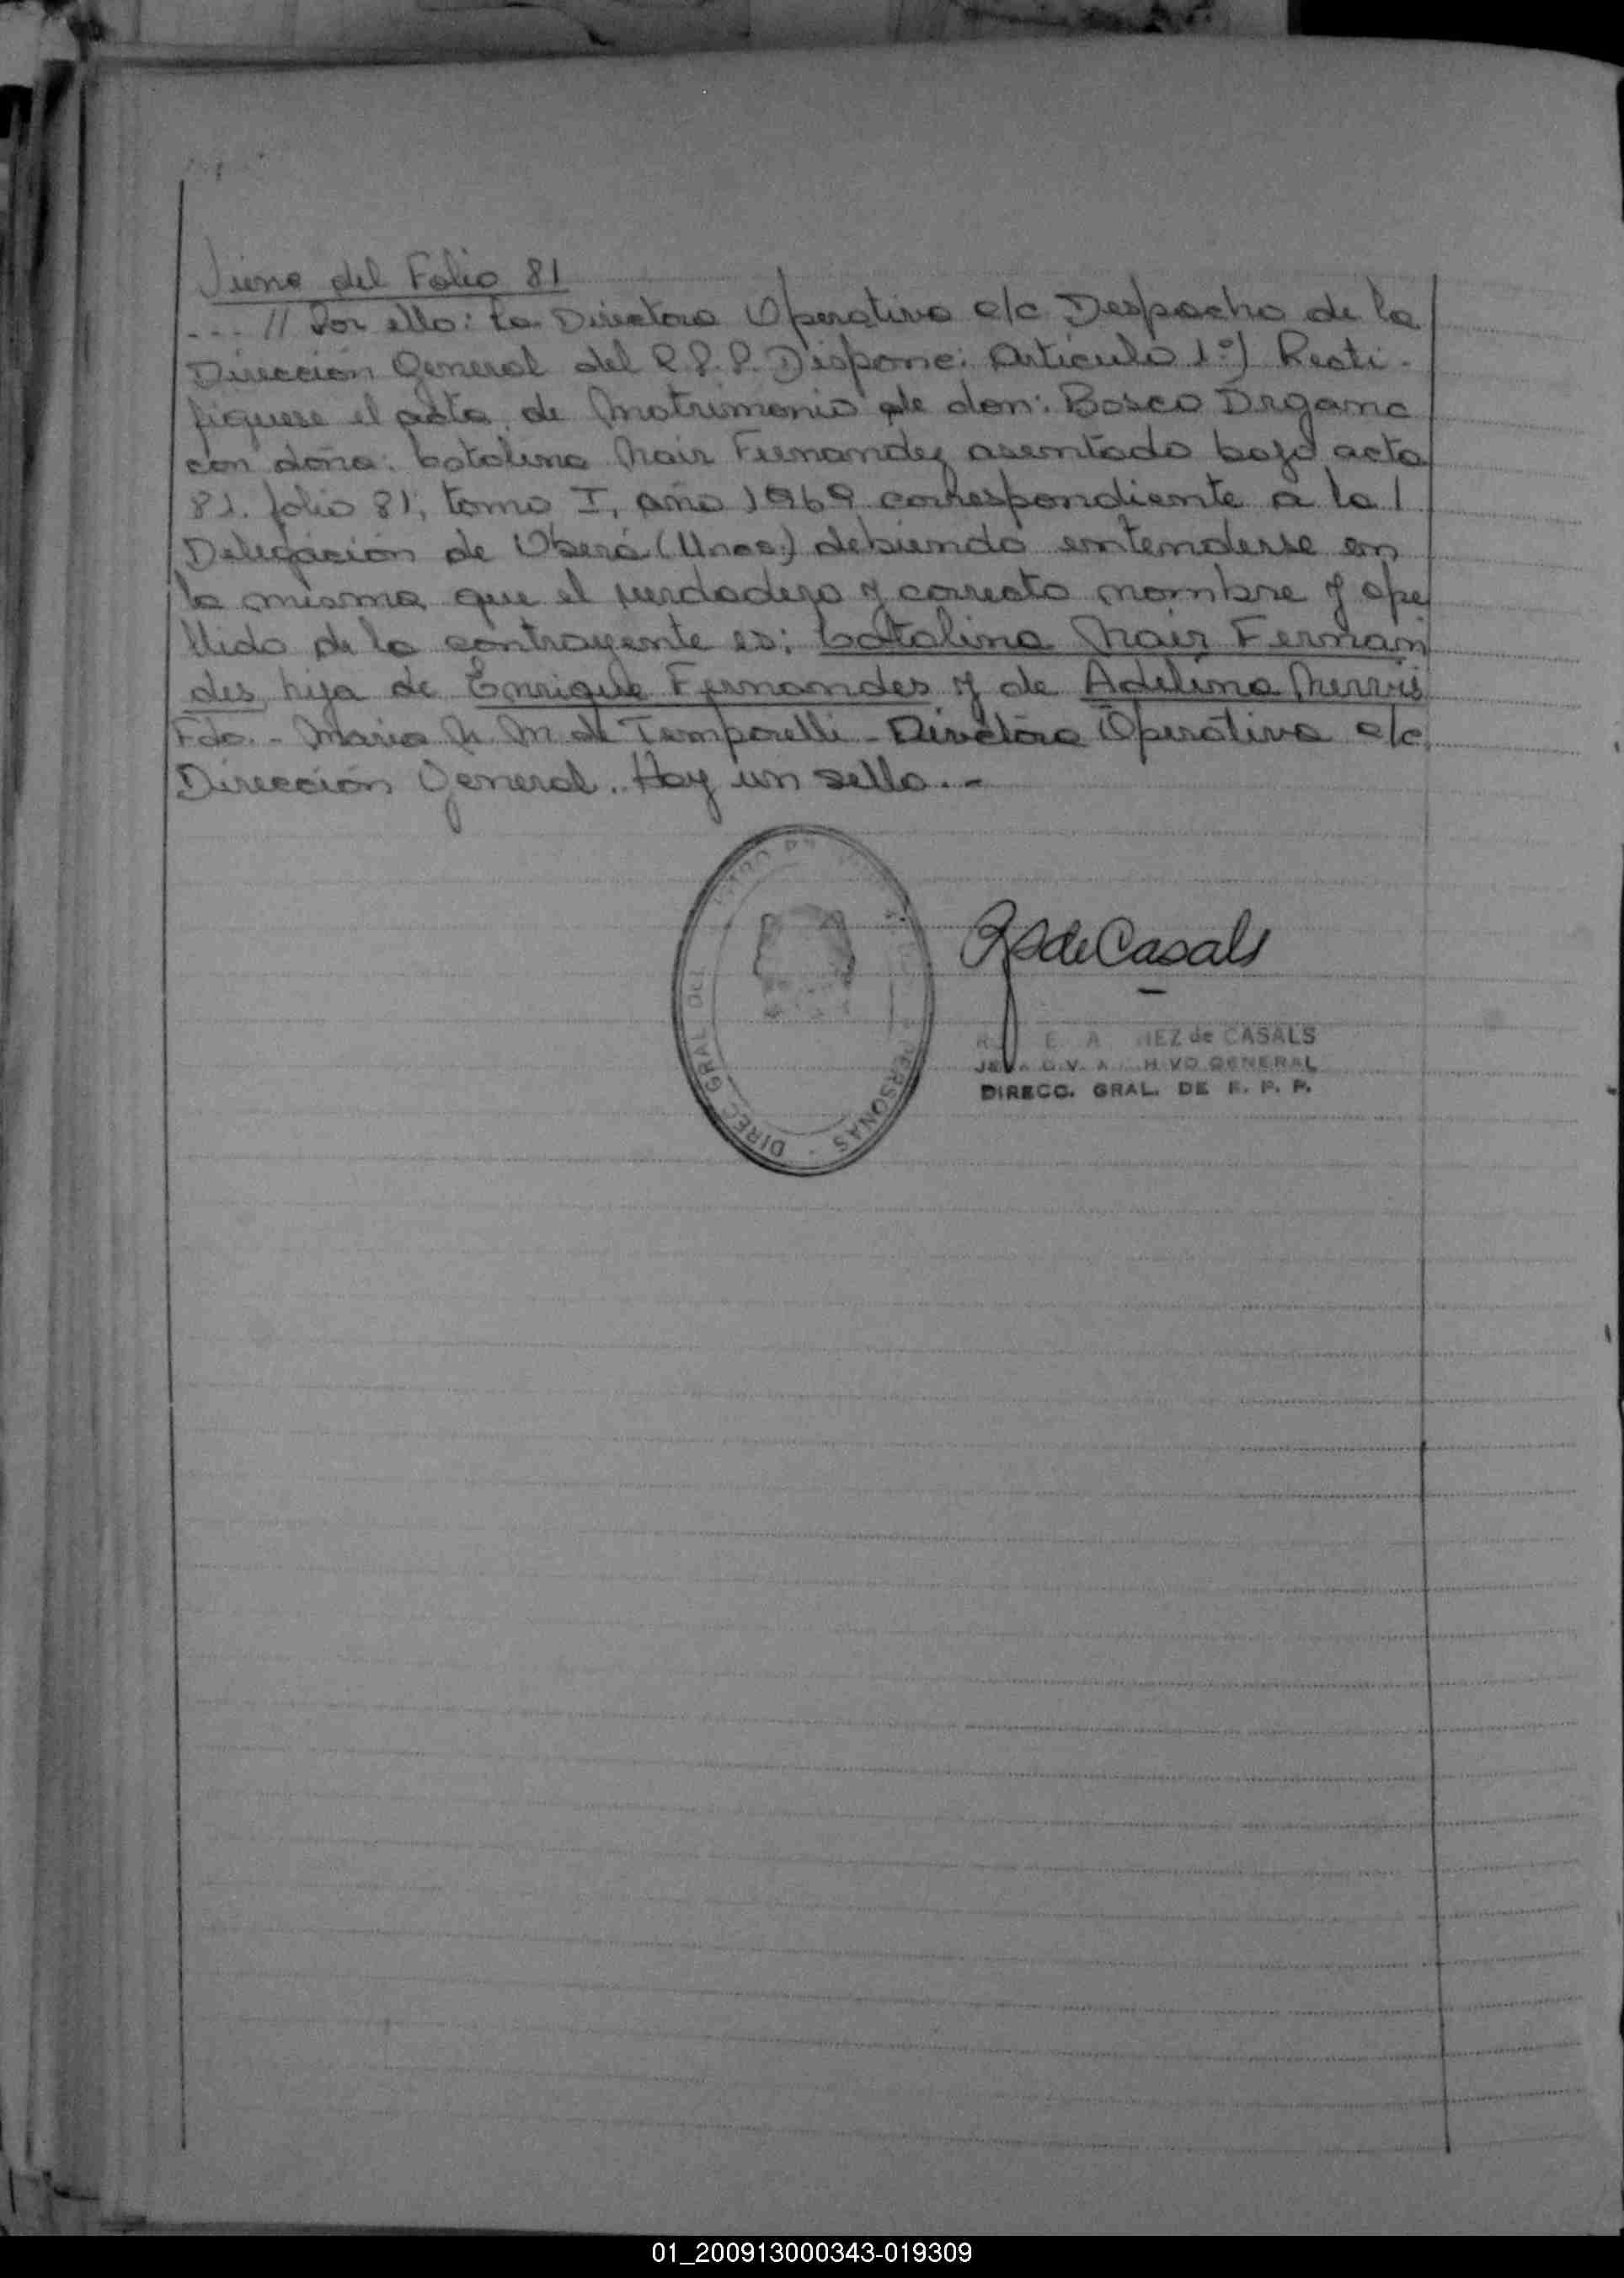 Viene del Folio 81
... // Por ello: La Directora Operativa a/c Despacho de la
Dirección General del R.P.P. Dispone: Artículo 1º) Recti-
fíquese el acta de Matrimonio de don: Bosco Drganc
con doña: Catalina Nair Fernandez asentado bajo acta
81. folio 81, tomo I, año 1969 correspondiente a la /
Delegación de Oberá (Mnes.) debiendo entenderse en
la misma que el verdadero y correcto nombre y ape
llido de la contrayente es: Catalina Nair Fernan
des, hija de Enrique Fernandes y de Adelina
Fdo. - Maria N. M. de Temporelli - Directora Operativa a/c
Dirección General. Hay un sello.. -
DIREC. GRAL. DEL PERSONAS
de Casals
NEZ de CASALS
GENERAL
DIRECC. GRAL. DE R. P. P.
01_200913000343-019309